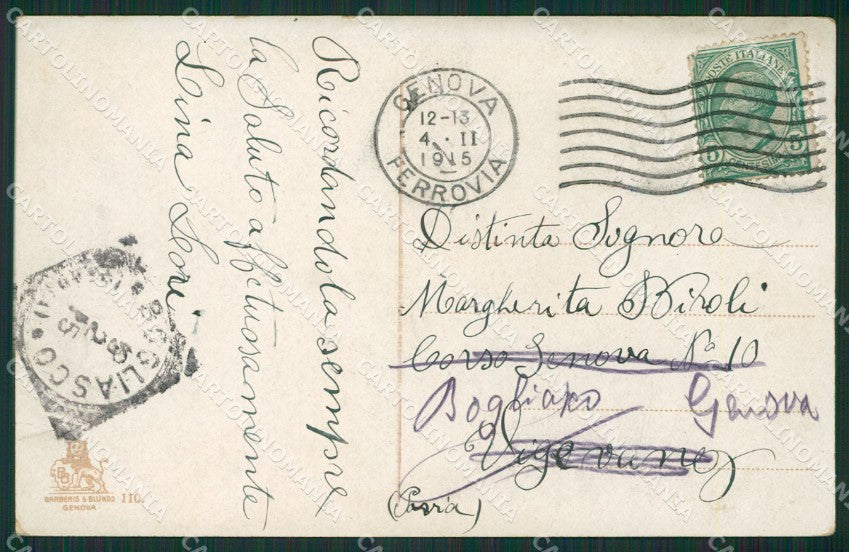 Ricordandola sempre
la Saluto affettuosamente
Lina Lori
GENOVA
12-13
4 · II
1915
FERROVIA
POSTE ITALIANE
5 5
Distinta Signora
Margherita Biroli
Corso Genova N° 10
Bogliasco Genova
Vigevano
(Pavia)
BOGLIASCO
BARBERIS & BLONDO 110.
GENOVA
CARTOLINOMANIA